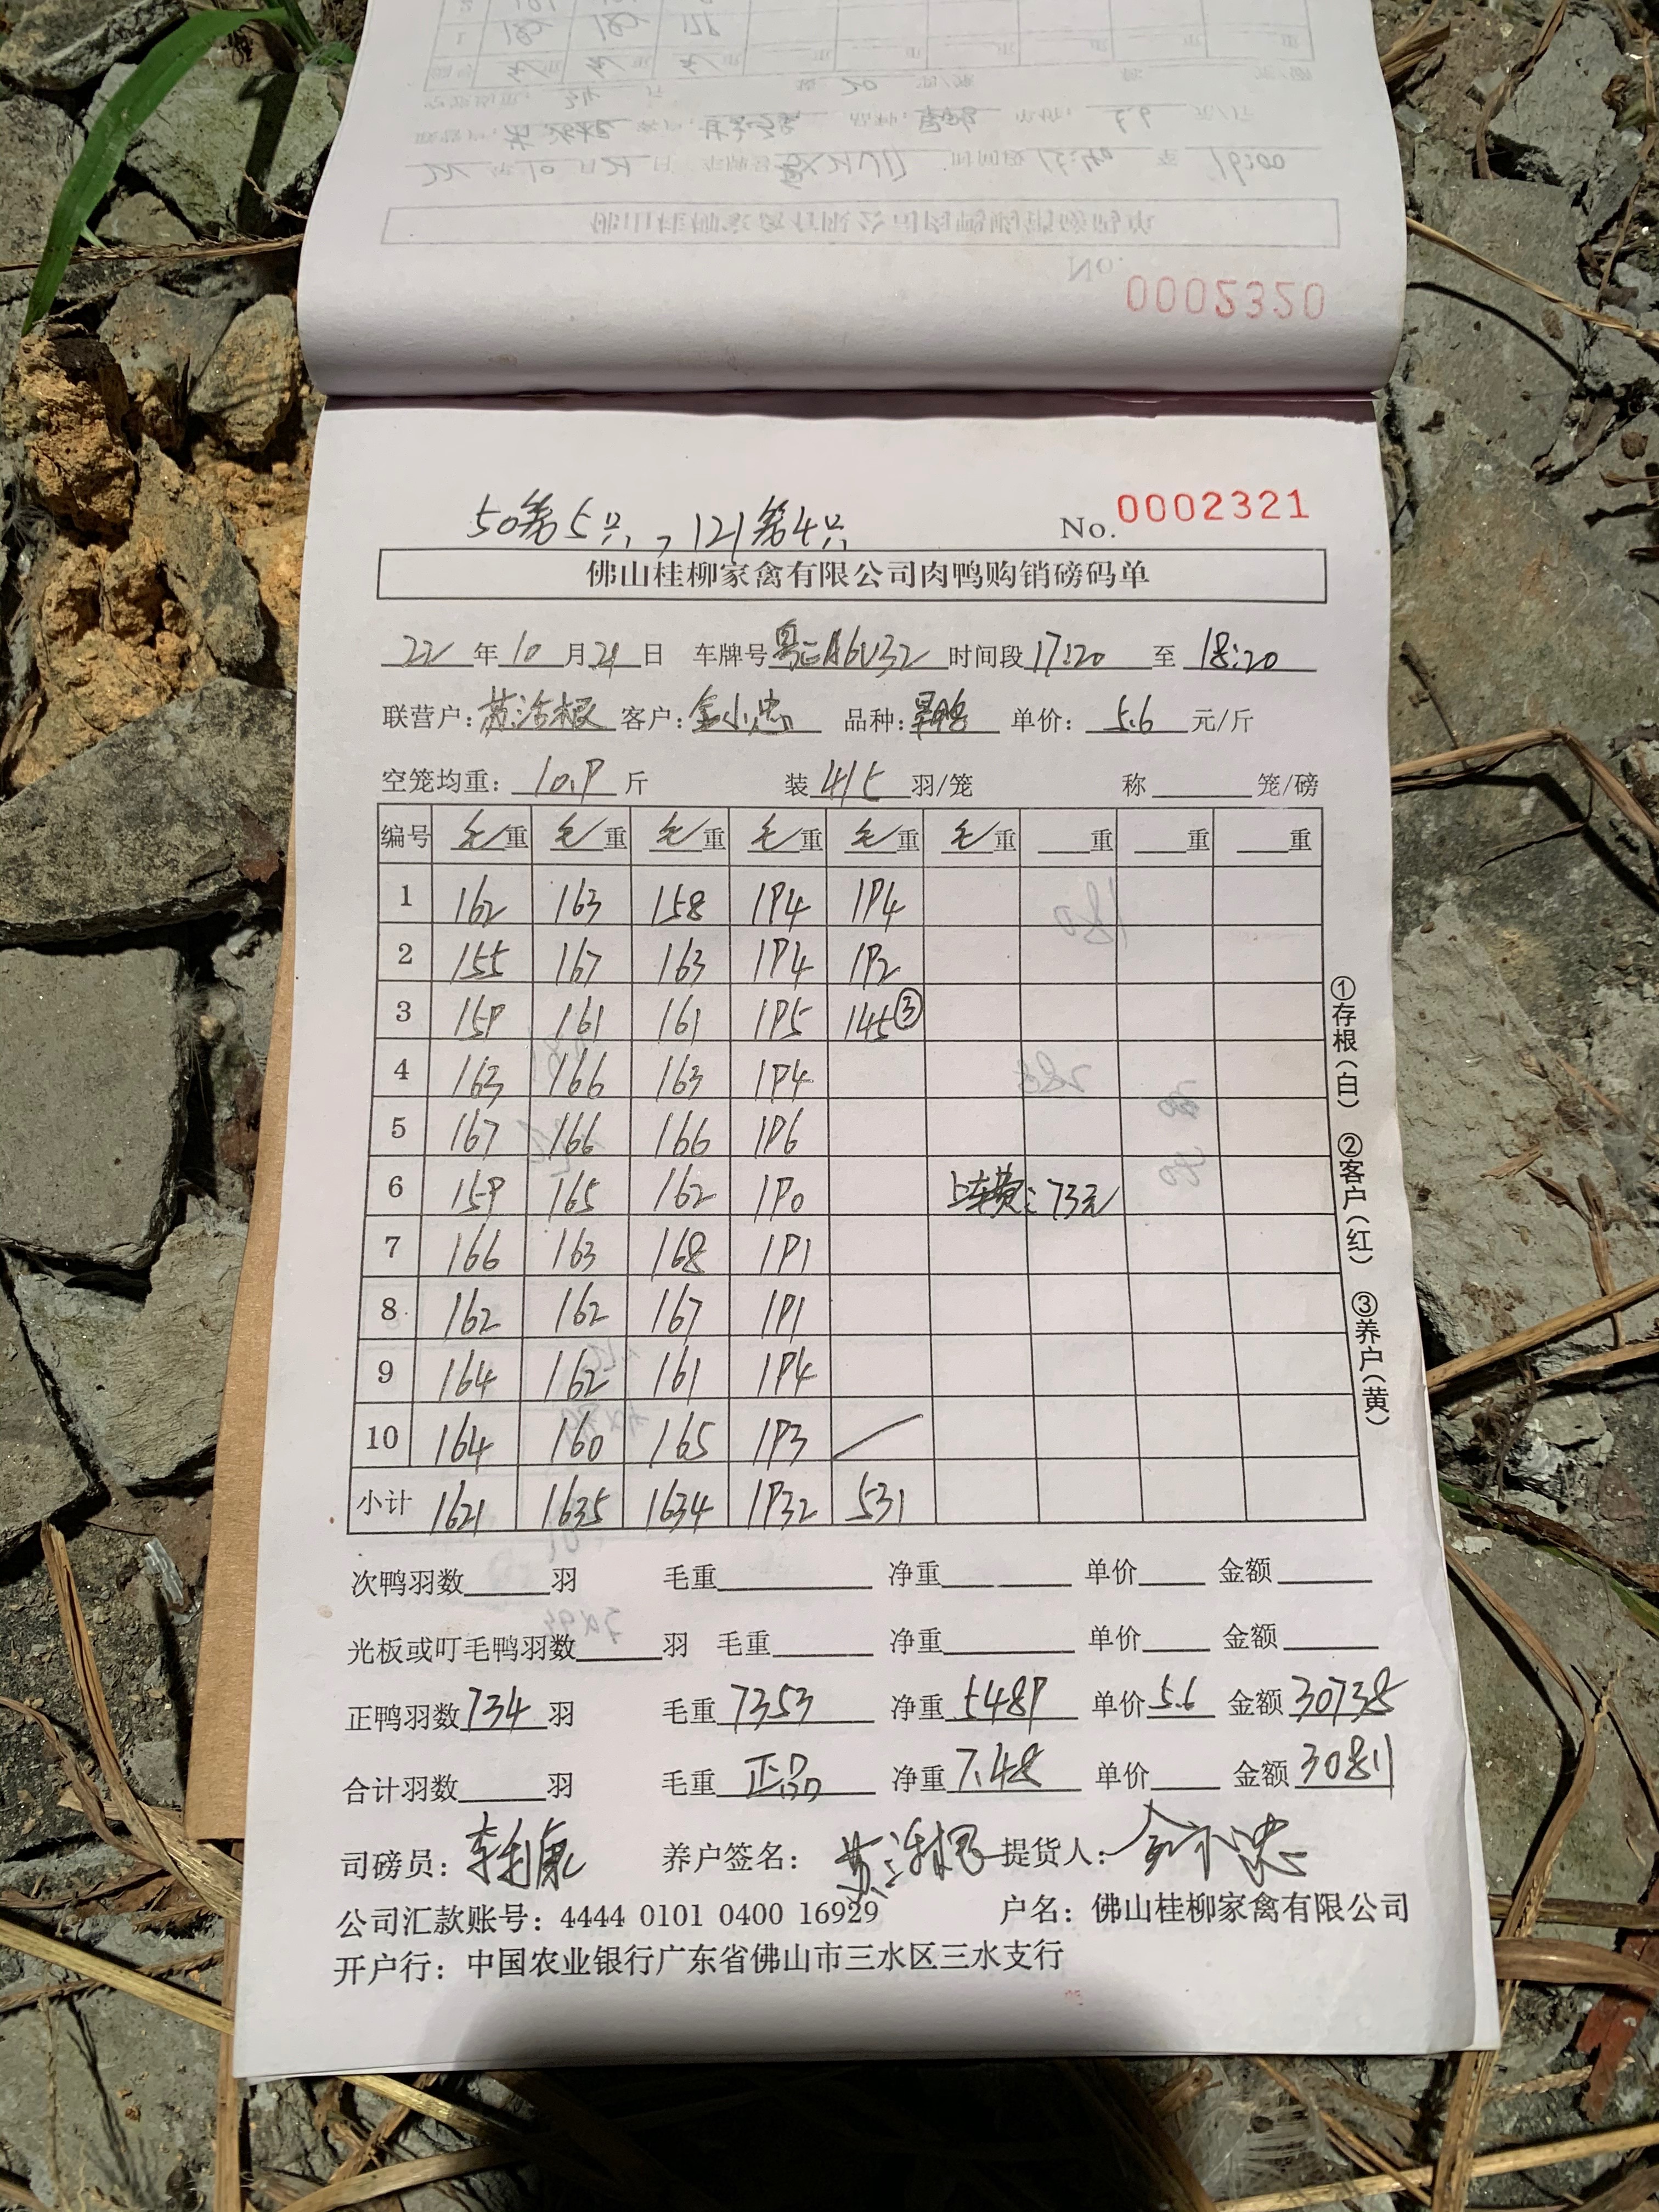 0002320
No.
50笼5只,121笼4只
No. 0002321
佛山桂柳家禽有限公司肉鸭购销磅码单
22年10月21日 车牌号 时间段17:20至18:20
联营户: 客户:金小忠 品种: 单价:5.6元/斤
空笼均重:10.9斤 装4/5羽/笼 称 笼/磅
编号 毛重 毛重 毛重 毛重 毛重 毛重 重 重 重
1 162 163 158 194 194
2 155 167 163 194 192
3 159 161 161 195 145③
4 163 166 163 194
5 167 166 166 196
6 159 165 162 190 上车费:73元
7 166 163 168 191
8 162 162 167 191
9 164 162 161 194
10 164 160 165 193
小计 1621 1635 1634 1932 531
①存根(白) ②客户(红) ③养户(黄)
次鸭羽数 羽 毛重 净重 单价 金额
光板或叮毛鸭羽数 羽 毛重 净重 单价 金额
正鸭羽数734羽 毛重7353 净重5489 单价5.6 金额30738
合计羽数 羽 毛重正品 净重7.48 单价 金额30811
司磅员:李利康 养户签名: 提货人:金小忠
公司汇款账号:4444 0101 0400 16929 户名:佛山桂柳家禽有限公司
开户行:中国农业银行广东省佛山市三水区三水支行